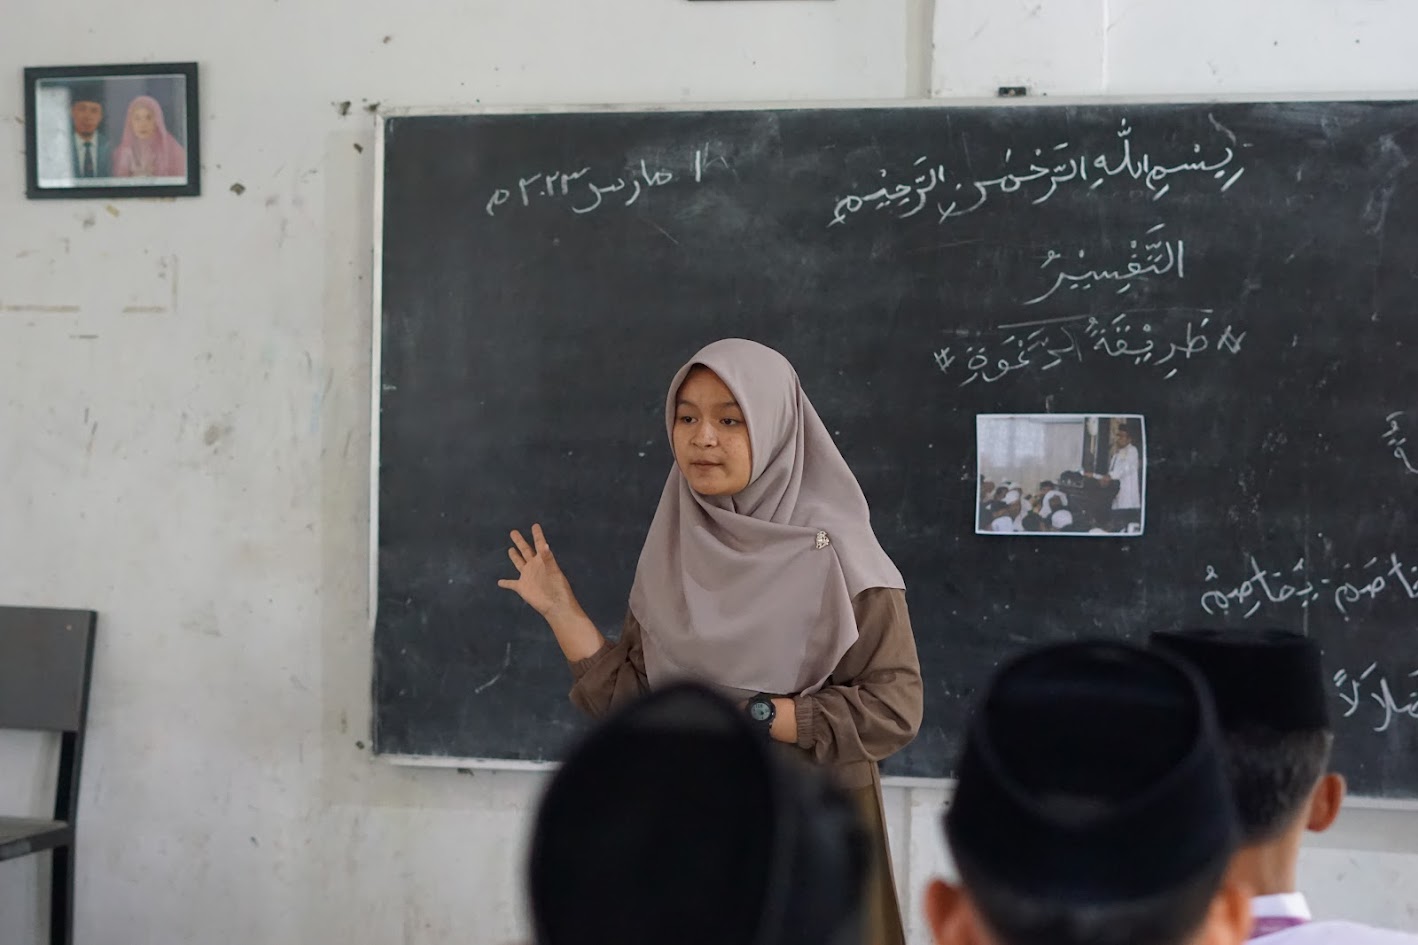 بِسْمِ اللّٰهِ الرَّحْمٰنِ الرَّحِيْمِ
١ مارس ٢٠٢٣ م
التَّفْسِيْرُ
* طَرِيْقَةُ الدَّعْوَةِ *
يُخَاصِمُ